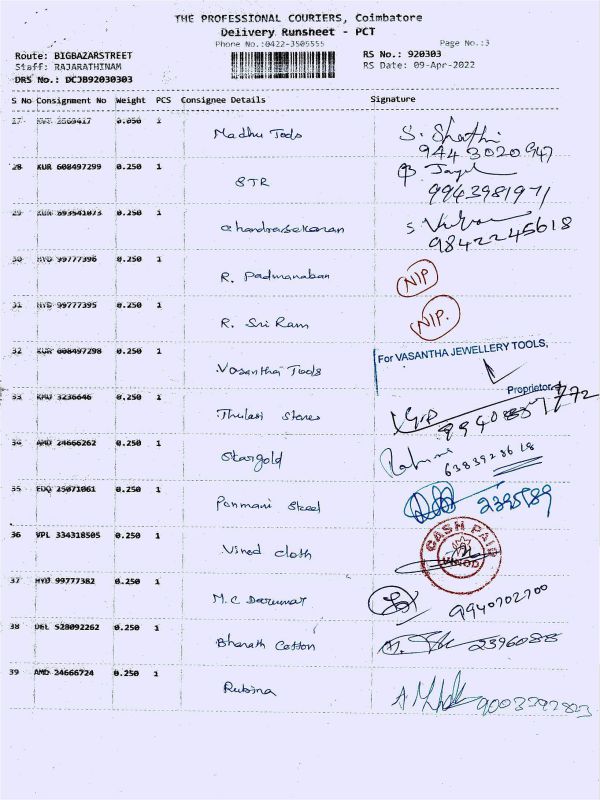 THE PROFESSIONAL COURIERS, Coimbatore
Delivery Runsheet - PCT
Phone No.:0422-3505555 Page No.:3
Route: BIGBAZARSTREET RS No.: 920303
Staff: RAJARATHINAM RS Date: 09-Apr-2022
DRS No.: DCJB92030303
S No Consignment No Weight PCS Consignee Details Signature
0.050 1 Madhu Tools
28 KUR 608497299 0.250 1 STR
9943981971
29 0.250 1 Chandrasekaran
9842245618
30 HYD 99777396 0.250 1 R. Padmanaban NIP
31 HYD 99777395 0.250 1 R. Sri Ram NIP.
32 KUR 608497298 0.250 1 Vasantha Tools
For VASANTHA JEWELLERY TOOLS,
Proprietor
33 3236646 0.250 1 Thulasi Stores
34 AMD 24666262 0.250 1 Stargold
35 EDQ 25071061 0.250 1 Ponmani Steel
36 VPL 334318505 0.250 1 Vinod cloth
CASH PAID
VINOD
37 HYD 99777382 0.250 1 M.C
38 DEL 528092262 0.250 1 Bharath Cotton
39 AMD 24666724 0.250 1 Rubina